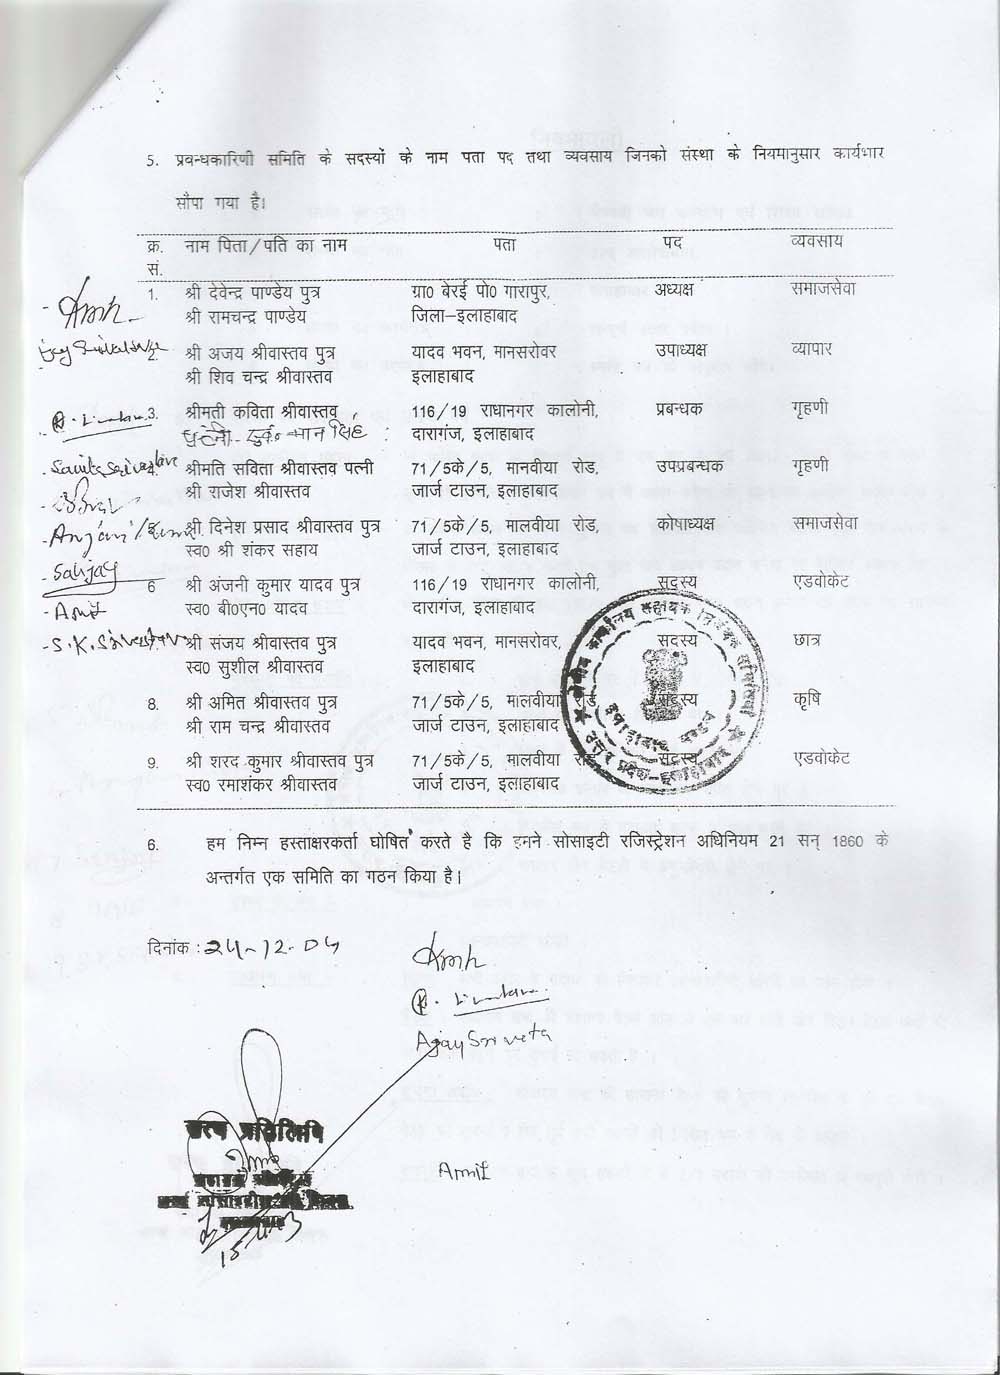 5. प्रवन्धकारिणी समिति के सदस्यों के नाम पता पद तथा व्यवसाय जिनको संस्था के नियमानुसार कार्यभार
सौपा गया है।
क्र. सं. नाम पिता/पति का नाम पता पद व्यवसाय
1. श्री देवेन्द्र पाण्डेय पुत्र ग्रा0 बेरई पो0 गारापुर, अध्यक्ष समाजसेवा
श्री रामचन्द्र पाण्डेय जिला–इलाहाबाद
2. श्री अजय श्रीवास्तव पुत्र यादव भवन, मानसरोवर उपाध्यक्ष व्यापार
श्री शिव चन्द्र श्रीवास्तव इलाहाबाद
3. श्रीमती कविता श्रीवास्तव 116/19 राधानगर कालोनी, प्रबन्धक गृहणी
दारागंज, इलाहाबाद
श्रीमति सविता श्रीवास्तव पत्नी 71/5के/5, मानवीया रोड, उपप्रबन्धक गृहणी
श्री राजेश श्रीवास्तव जार्ज टाउन, इलाहाबाद
श्री दिनेश प्रसाद श्रीवास्तव पुत्र 71/5के/5, मालवीया रोड, कोषाध्यक्ष समाजसेवा
स्व0 श्री शंकर सहाय जार्ज टाउन, इलाहाबाद
6 श्री अंजनी कुमार यादव पुत्र 116/19 राधानगर कालोनी, सदस्य एडवोकेट
स्व0 बी0एन0 यादव दारागंज, इलाहाबाद
श्री संजय श्रीवास्तव पुत्र यादव भवन, मानसरोवर, सदस्य छात्र
स्व0 सुशील श्रीवास्तव इलाहाबाद
8. श्री अमित श्रीवास्तव पुत्र 71/5के/5, मालवीया रोड, सदस्य कृषि
श्री राम चन्द्र श्रीवास्तव जार्ज टाउन, इलाहाबाद
9. श्री शरद कुमार श्रीवास्तव पुत्र 71/5के/5, मालवीया रोड, सदस्य एडवोकेट
स्व0 रमाशंकर श्रीवास्तव जार्ज टाउन, इलाहाबाद
Sanjay
Amit
S.K.Srivastava
6. हम निम्न हस्ताक्षरकर्ता घोषित करते है कि हमने सोसाइटी रजिस्ट्रेशन अधिनियम 21 सन् 1860 के
अन्तर्गत एक समिति का गठन किया है।
दिनांक : 24-12-04
Ajay
Amit
सत्य प्रतिलिपि